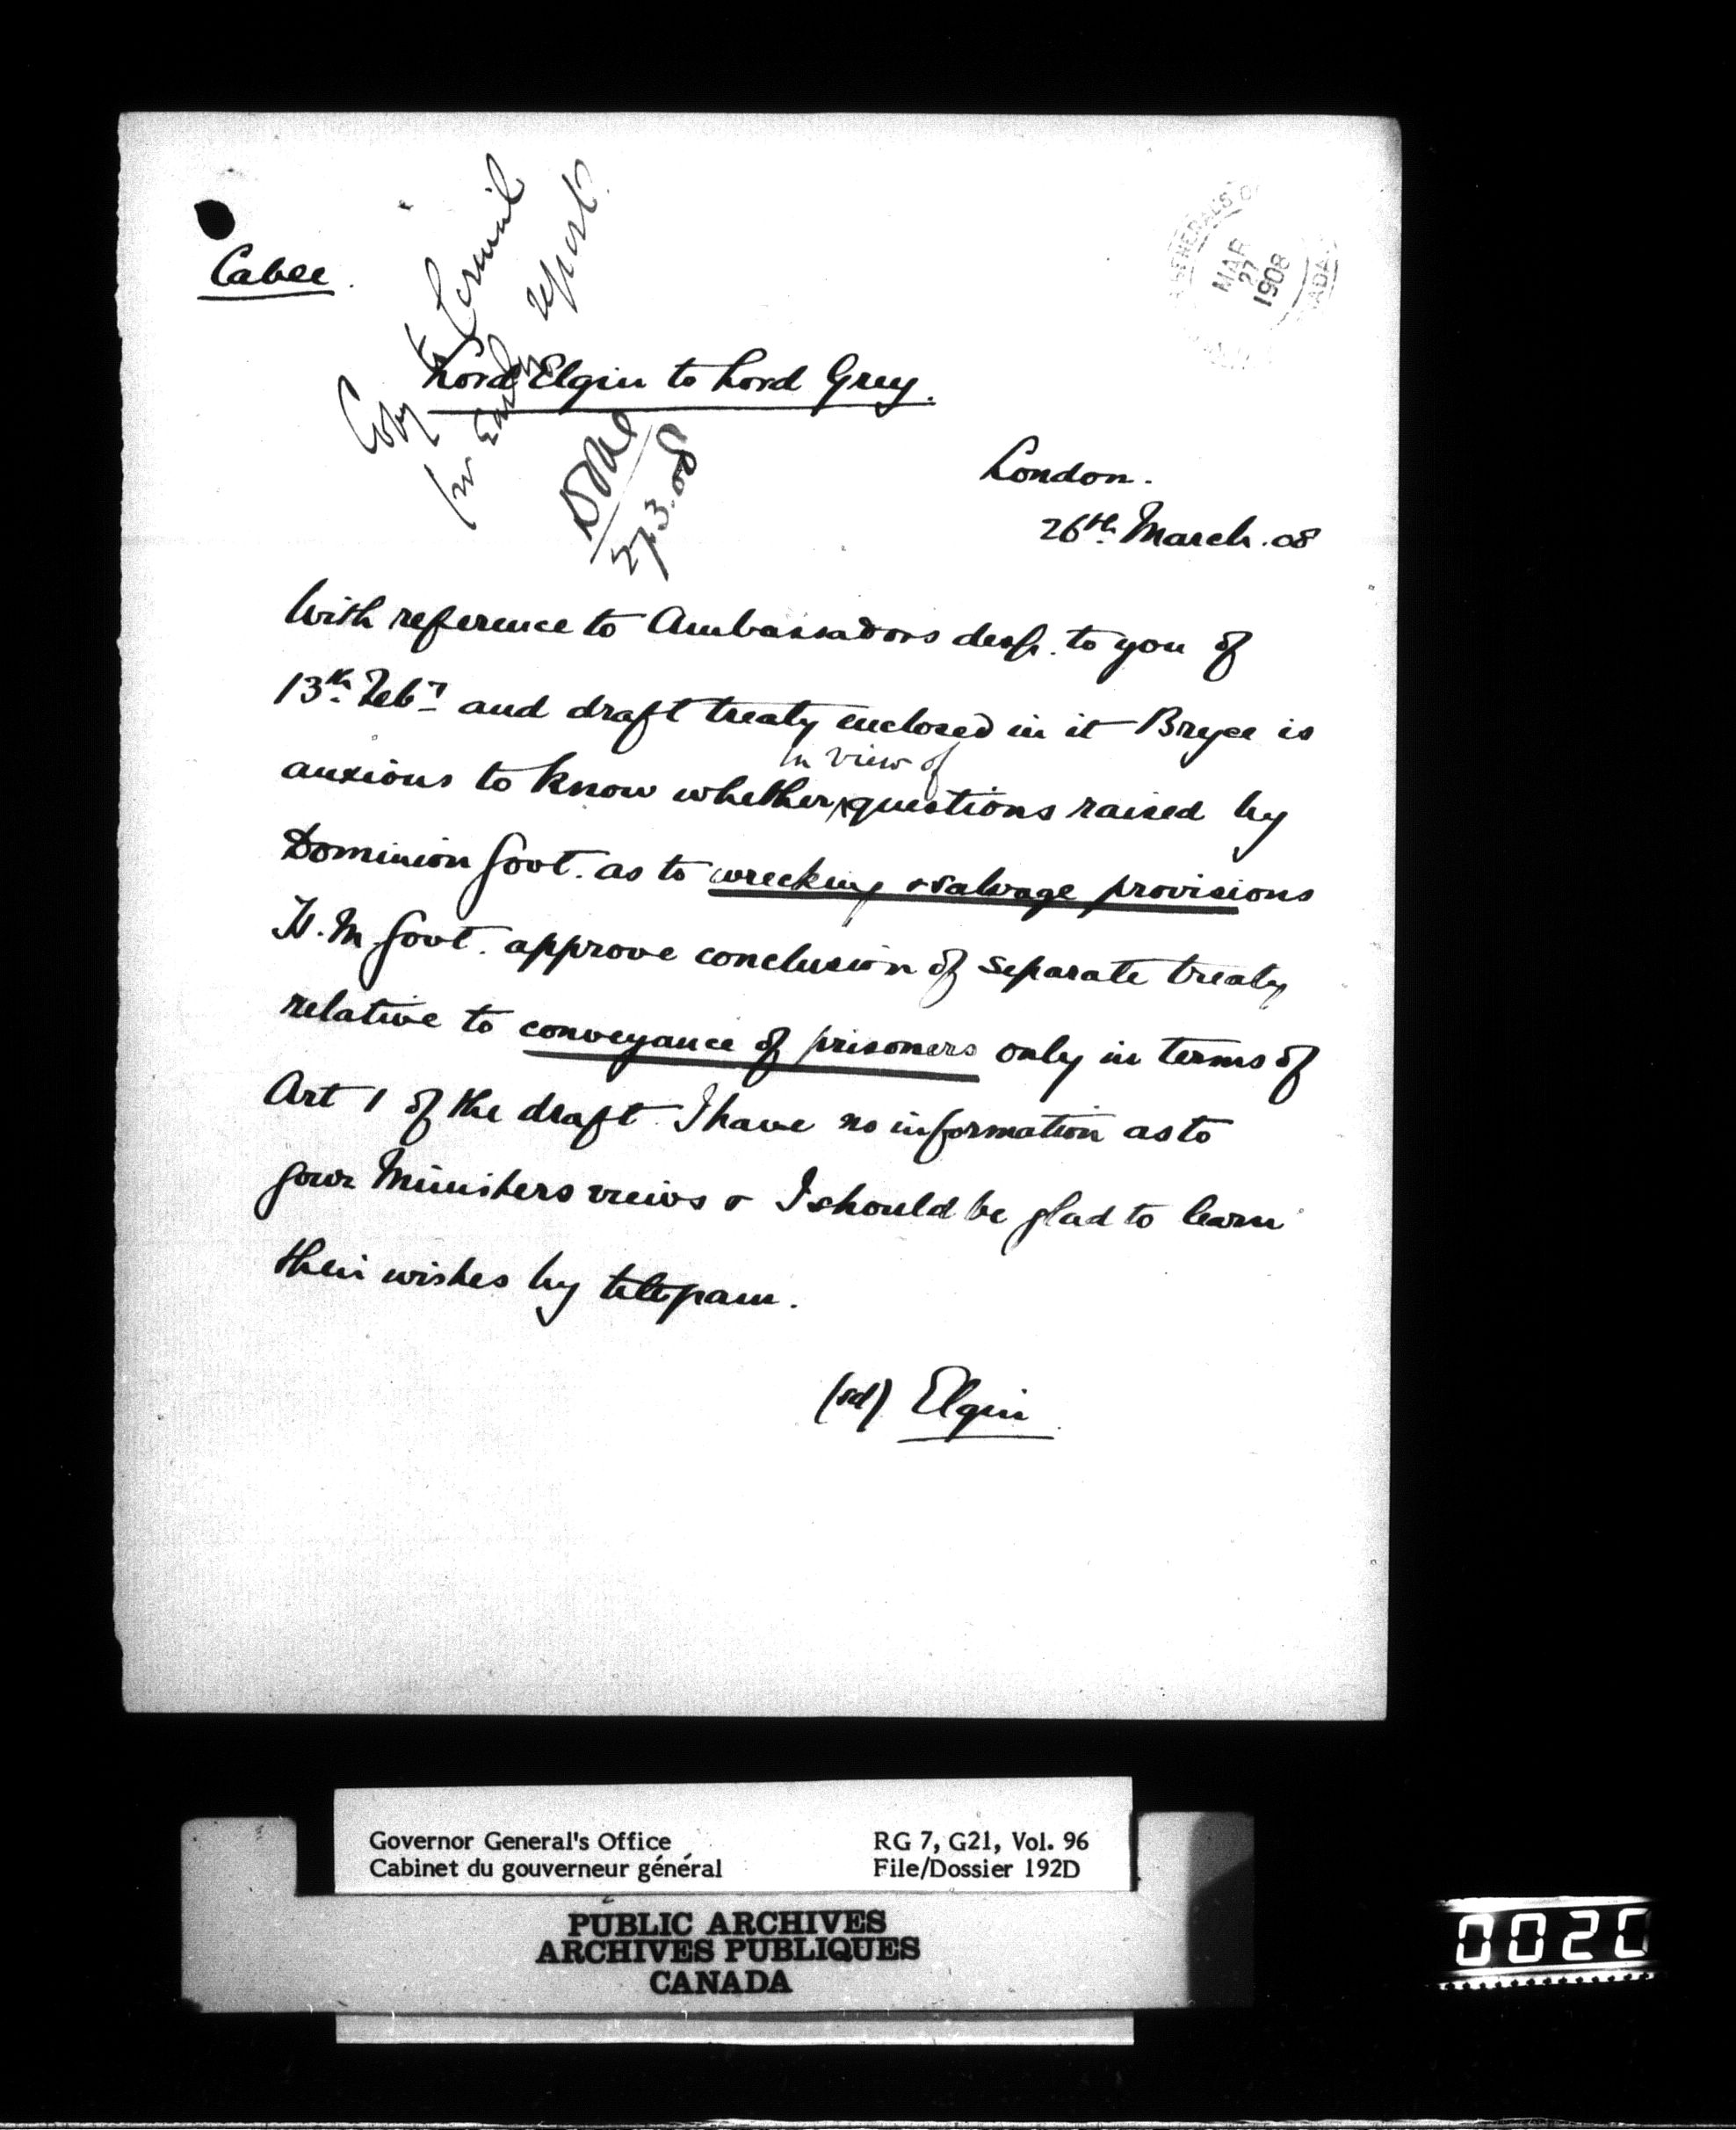 Cable.
Copy to Council
for Early report.
27.3.08
GENERAL'S O
MAR
27
1908
ADA
Lord Elgin to Lord Grey.
London.
26th. March. 08
With reference to Ambassadors desp. to you of
13th. Feby and draft treaty enclosed in it Bryce is
anxious to know whether in view of questions raised by
Dominion Govt. as to wrecking & salvage provisions
H.M Govt. approve conclusion of separate treaty
relative to conveyance of prisoners only in terms of
Art 1 of the draft. I have no information as to
your Ministers views & I should be glad to learn
their wishes by telegram.
(sd) Elgin
Governor General's Office
Cabinet du gouverneur général
RG 7, G21, Vol. 96
File/Dossier 192D
PUBLIC ARCHIVES
ARCHIVES PUBLIQUES
CANADA
0020